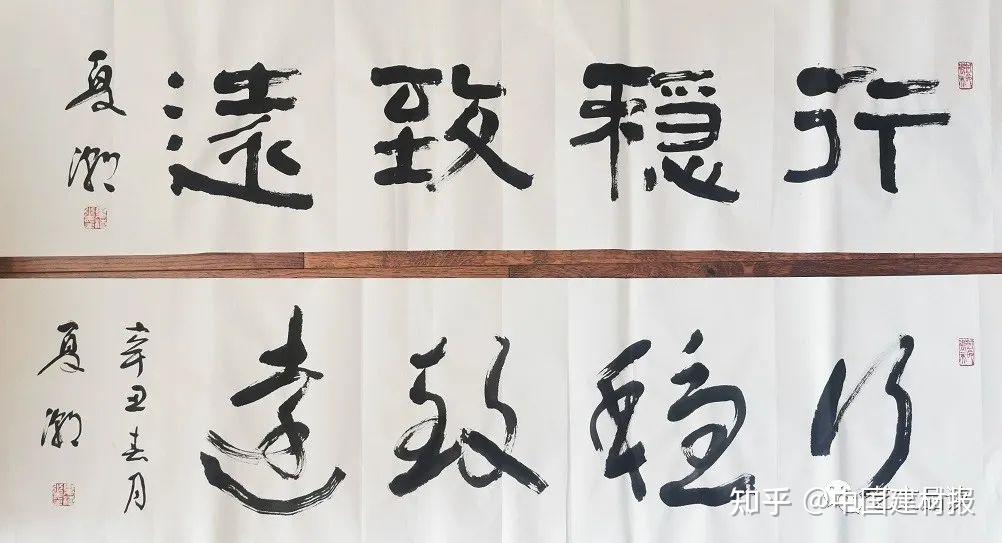 行穩致遠
夏潮
行穩致遠
辛丑春月
夏潮
知乎 @中国建材报